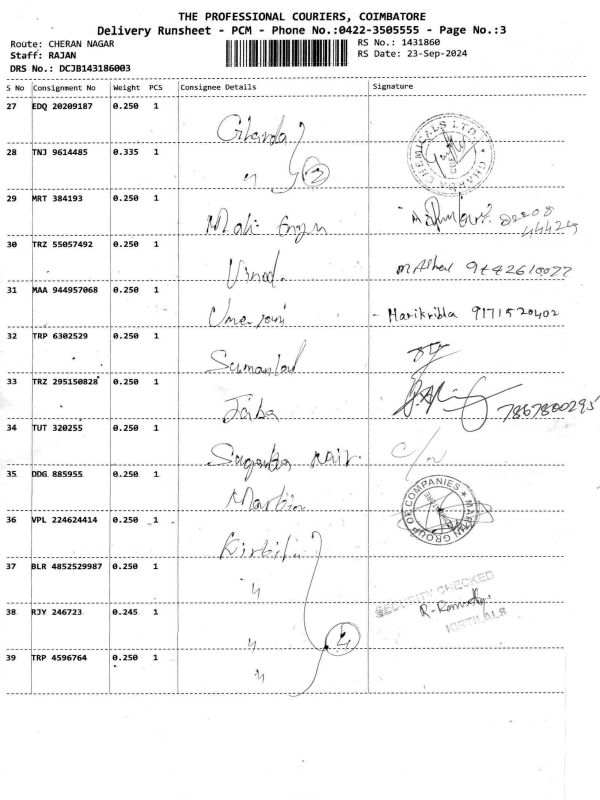 THE PROFESSIONAL COURIERS, COIMBATORE
Delivery Runsheet - PCM - Phone No.:0422-3505555 - Page No.:3
Route: CHERAN NAGAR
RS No.: 1431860
Staff: RAJAN
RS Date: 23-Sep-2024
DRS No.: DCJB143186003
S No Consignment No Weight PCS Consignee Details Signature
27 EDQ 20209187 0.250 1
Gharda
GHARDA CHEMICALS LTD.
28 TNJ 9614485 0.335 1
" 2
29 MRT 384193 0.250 1
82208
44424
30 TRZ 55057492 0.250 1
Vinod. 9442610077
31 MAA 944957068 0.250 1
- Harikribha 9171520402
32 TRP 6302529 0.250 1
33 TRZ 295150828 0.250 1
7867800295
34 TUT 320255 0.250 1
Nair. C/N
35 DDG 885955 0.250 1
Martin
MARTIN GROUP OF COMPANIES
36 VPL 224624414 0.250 1
37 BLR 4852529987 0.250 1
"
SECURITY CHECKED
38 RJY 246723 0.245 1
KIRTILALS
" 4
39 TRP 4596764 0.250 1
"